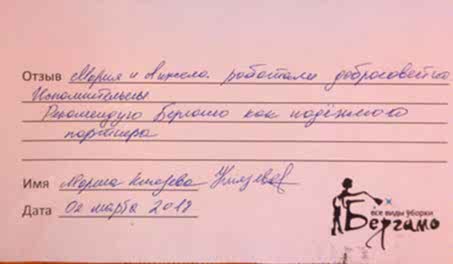 Отзыв Мария и Анжела работали добросовестно
Исполнительны
Рекомендую Бергамо как надёжного
партнёра
Имя Марина Князева Князева
Дата 02 марта 2018
все виды уборки
Бергамо